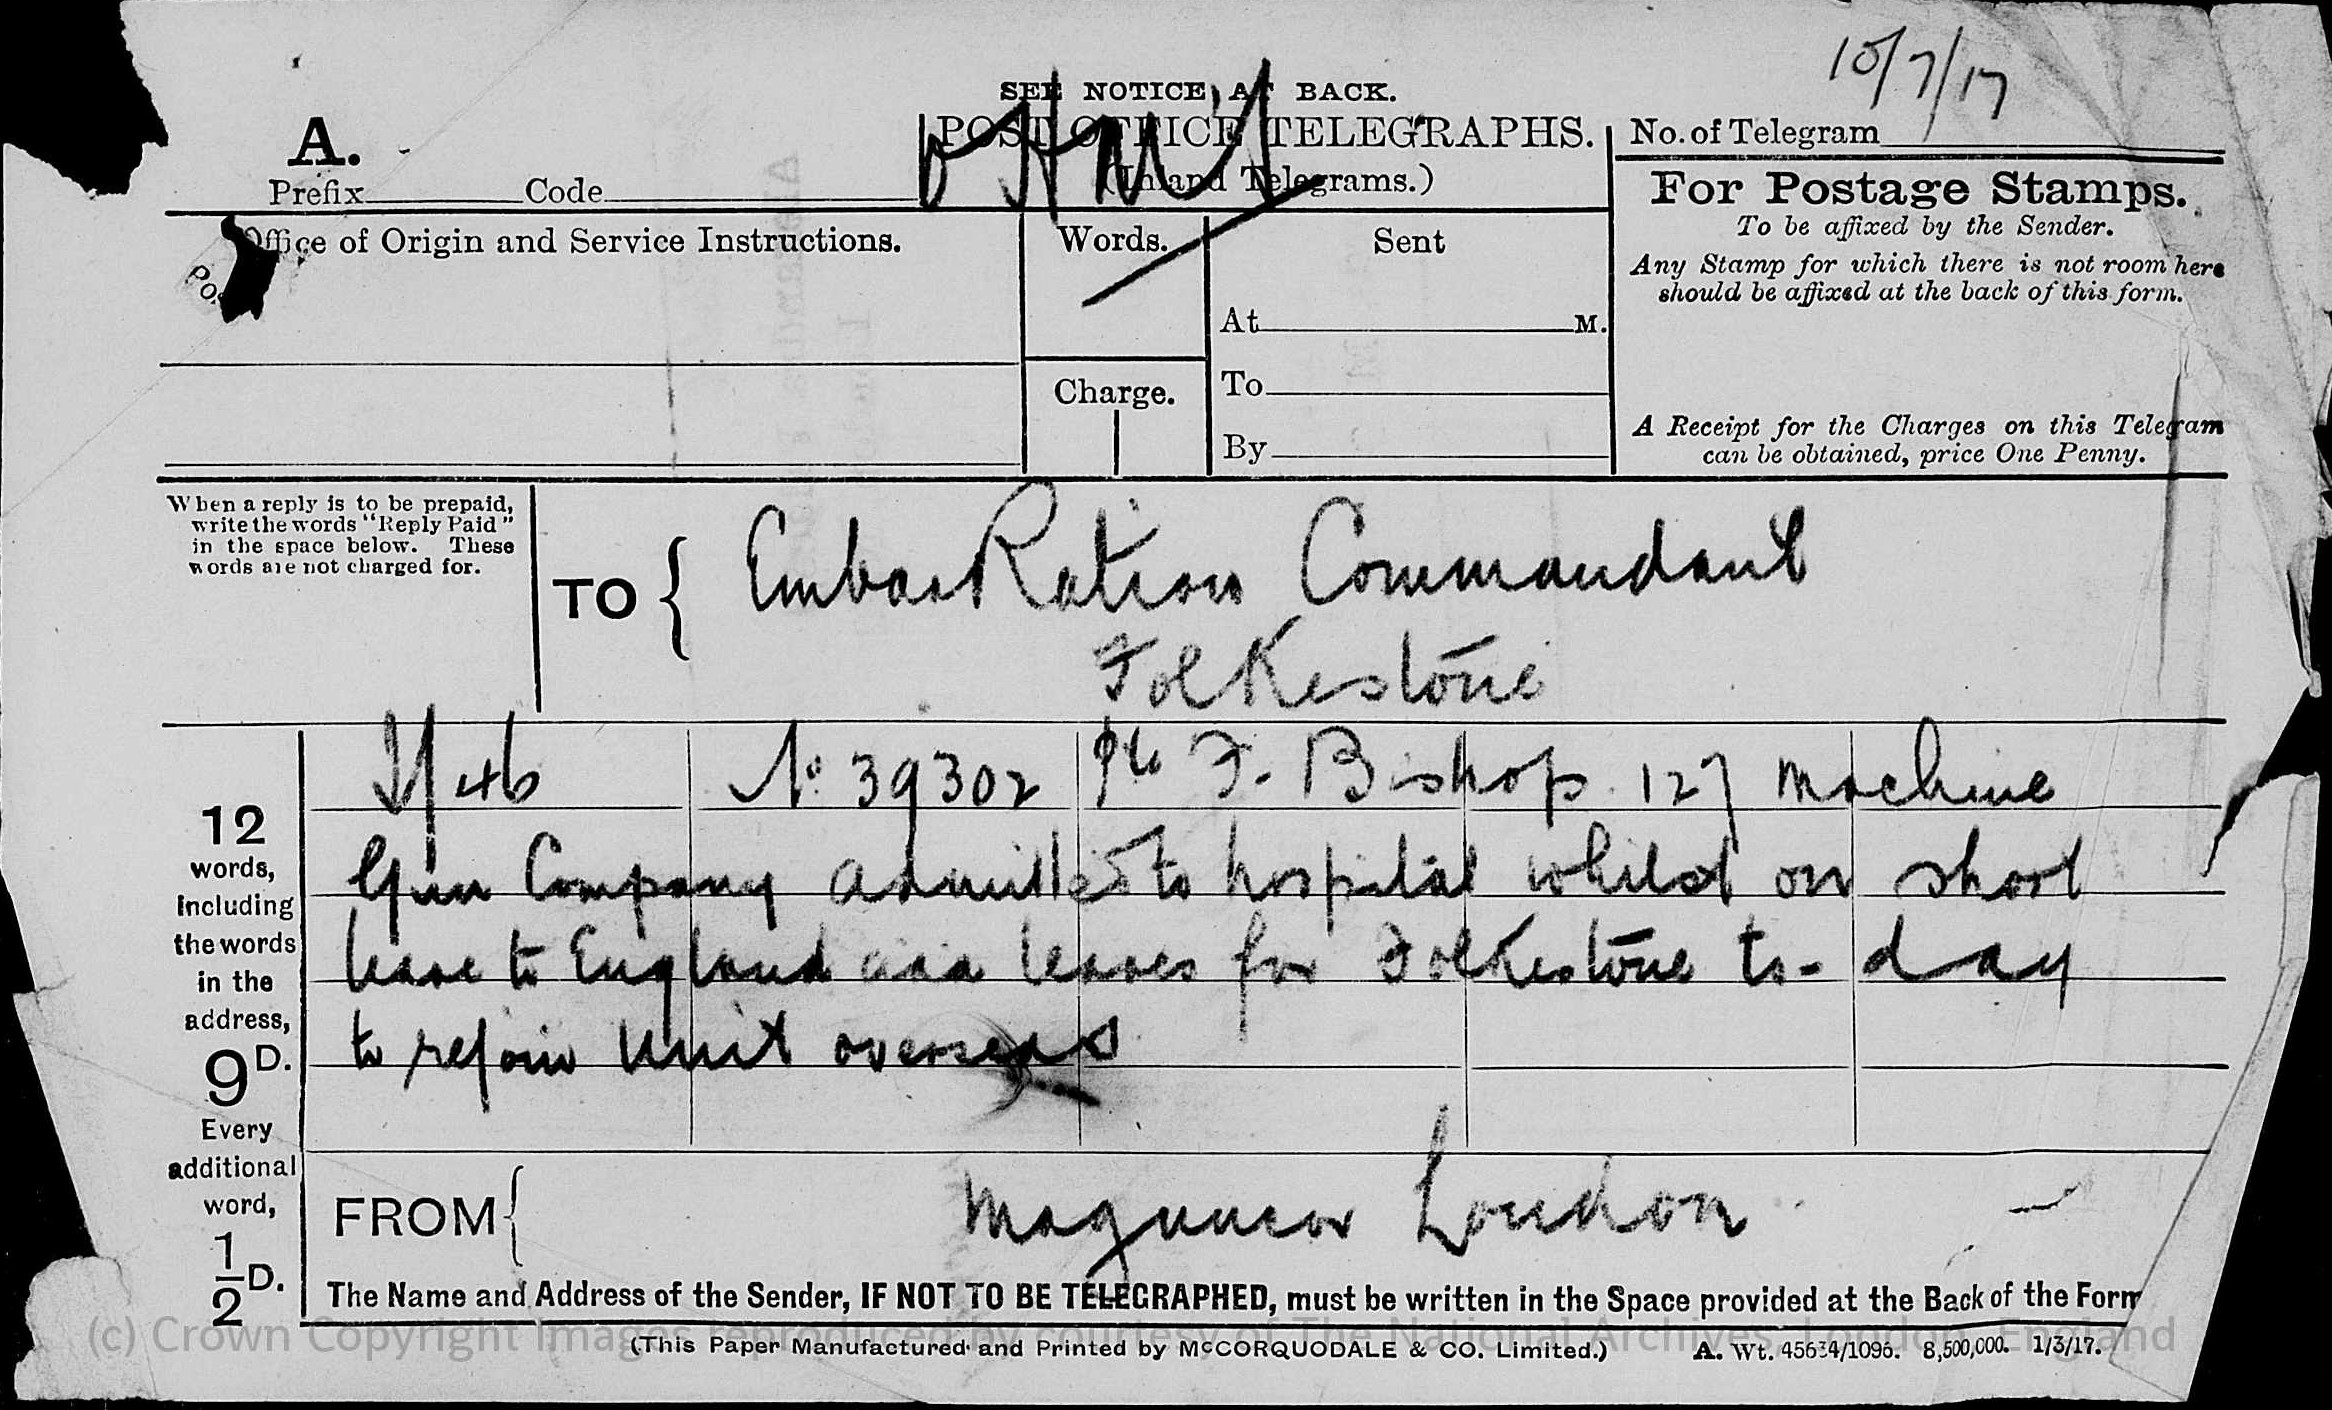 10/7/17
SEE NOTICE AT BACK.
A.
POST OFFICE TELEGRAPHS.
(Inland Telegrams.)
No. of Telegram
Prefix Code
Office of Origin and Service Instructions.
Words.
Sent
At M.
To
By
Charge.
For Postage Stamps.
To be affixed by the Sender.
Any Stamp for which there is not room here
should be affixed at the back of this form.
A Receipt for the Charges on this Telegram
can be obtained, price One Penny.
When a reply is to be prepaid,
write the words "Reply Paid"
in the space below. These
words are not charged for.
TO
Embarkation Commandant
Folkestone
46 No 39302 Pte F. Bishop. 127 Machine
Gun Company admitted to hospital whilst on short
leave to England and leaves for Folkestone to-day
to rejoin Unit overseas
12
words,
including
the words
in the
address,
9D.
Every
additional
word,
1/2 D.
FROM
London
The Name and Address of the Sender, IF NOT TO BE TELEGRAPHED, must be written in the Space provided at the Back of the Form
(This Paper Manufactured and Printed by McCORQUODALE & CO. Limited.) A. Wt. 45634/1096. 8,500,000. 1/3/17.
(c) Crown Copyright Images reproduced by courtesy of The National Archives, London, England